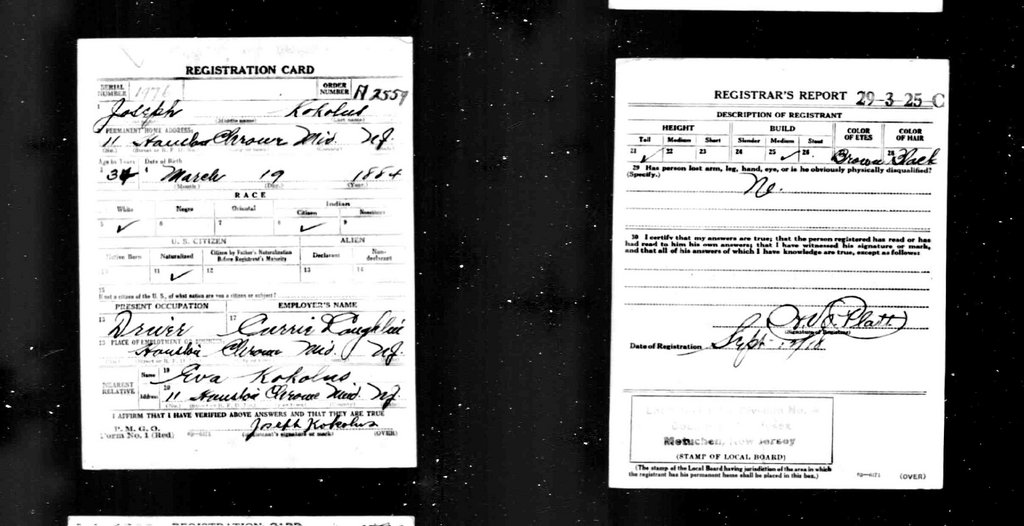 REGISTRATION CARD
SERIAL NUMBER 1976 ORDER NUMBER A2559
1 Joseph Kokolus
(Middle name) (Last name)
2 PERMANENT HOME ADDRESS:
11 Houston Chrome Mid. NJ.
(No.)
Age in Years Date of Birth
3 34 4 March 19 1884
(Month.) (Day.) (Year.)
RACE
White Negro Oriental Indian
Citizen Noncitizen
5 ✓ 6 7 8 ✓ 9
U. S. CITIZEN ALIEN
Native Born Naturalized Citizen by Father's Naturalization Before Registrant's Majority Declarant Non-declarant
10 11 ✓ 12 13 14
15
If not a citizen of the U. S., of what nation are you a citizen or subject?
PRESENT OCCUPATION EMPLOYER'S NAME
16 Driver 17 Currie Laughlin
18 PLACE OF EMPLOYMENT OR BUSINESS
Houston Chrome Mid. NJ.
NEAREST RELATIVE Name 19 Eva Kokolus
Address 20 11 Houston Chrome Mid. NJ.
I AFFIRM THAT I HAVE VERIFIED ABOVE ANSWERS AND THAT THEY ARE TRUE
P. M. G. O.
Form No. 1 (Red) Joseph Kokolus
(Registrant's signature or mark) (OVER)
REGISTRAR'S REPORT 29-3-25-C
DESCRIPTION OF REGISTRANT
HEIGHT BUILD COLOR OF EYES COLOR OF HAIR
Tall Medium Short Slender Medium Stout
21 ✓ 22 23 24 25 ✓ 26 Brown 28 Black
29 Has person lost arm, leg, hand, eye, or is he obviously physically disqualified?
(Specify.) No.
30 I certify that my answers are true; that the person registered has read or has
had read to him his own answers; that I have witnessed his signature or mark,
and that all of his answers of which I have knowledge are true, except as follows:
Platt
(Signature of Registrar)
Date of Registration Sept
Metuchen, New Jersey
(STAMP OF LOCAL BOARD)
(The stamp of the Local Board having jurisdiction of the area in which
the registrant has his permanent home shall be placed in this box.)
(OVER)
REGISTRATION CARD